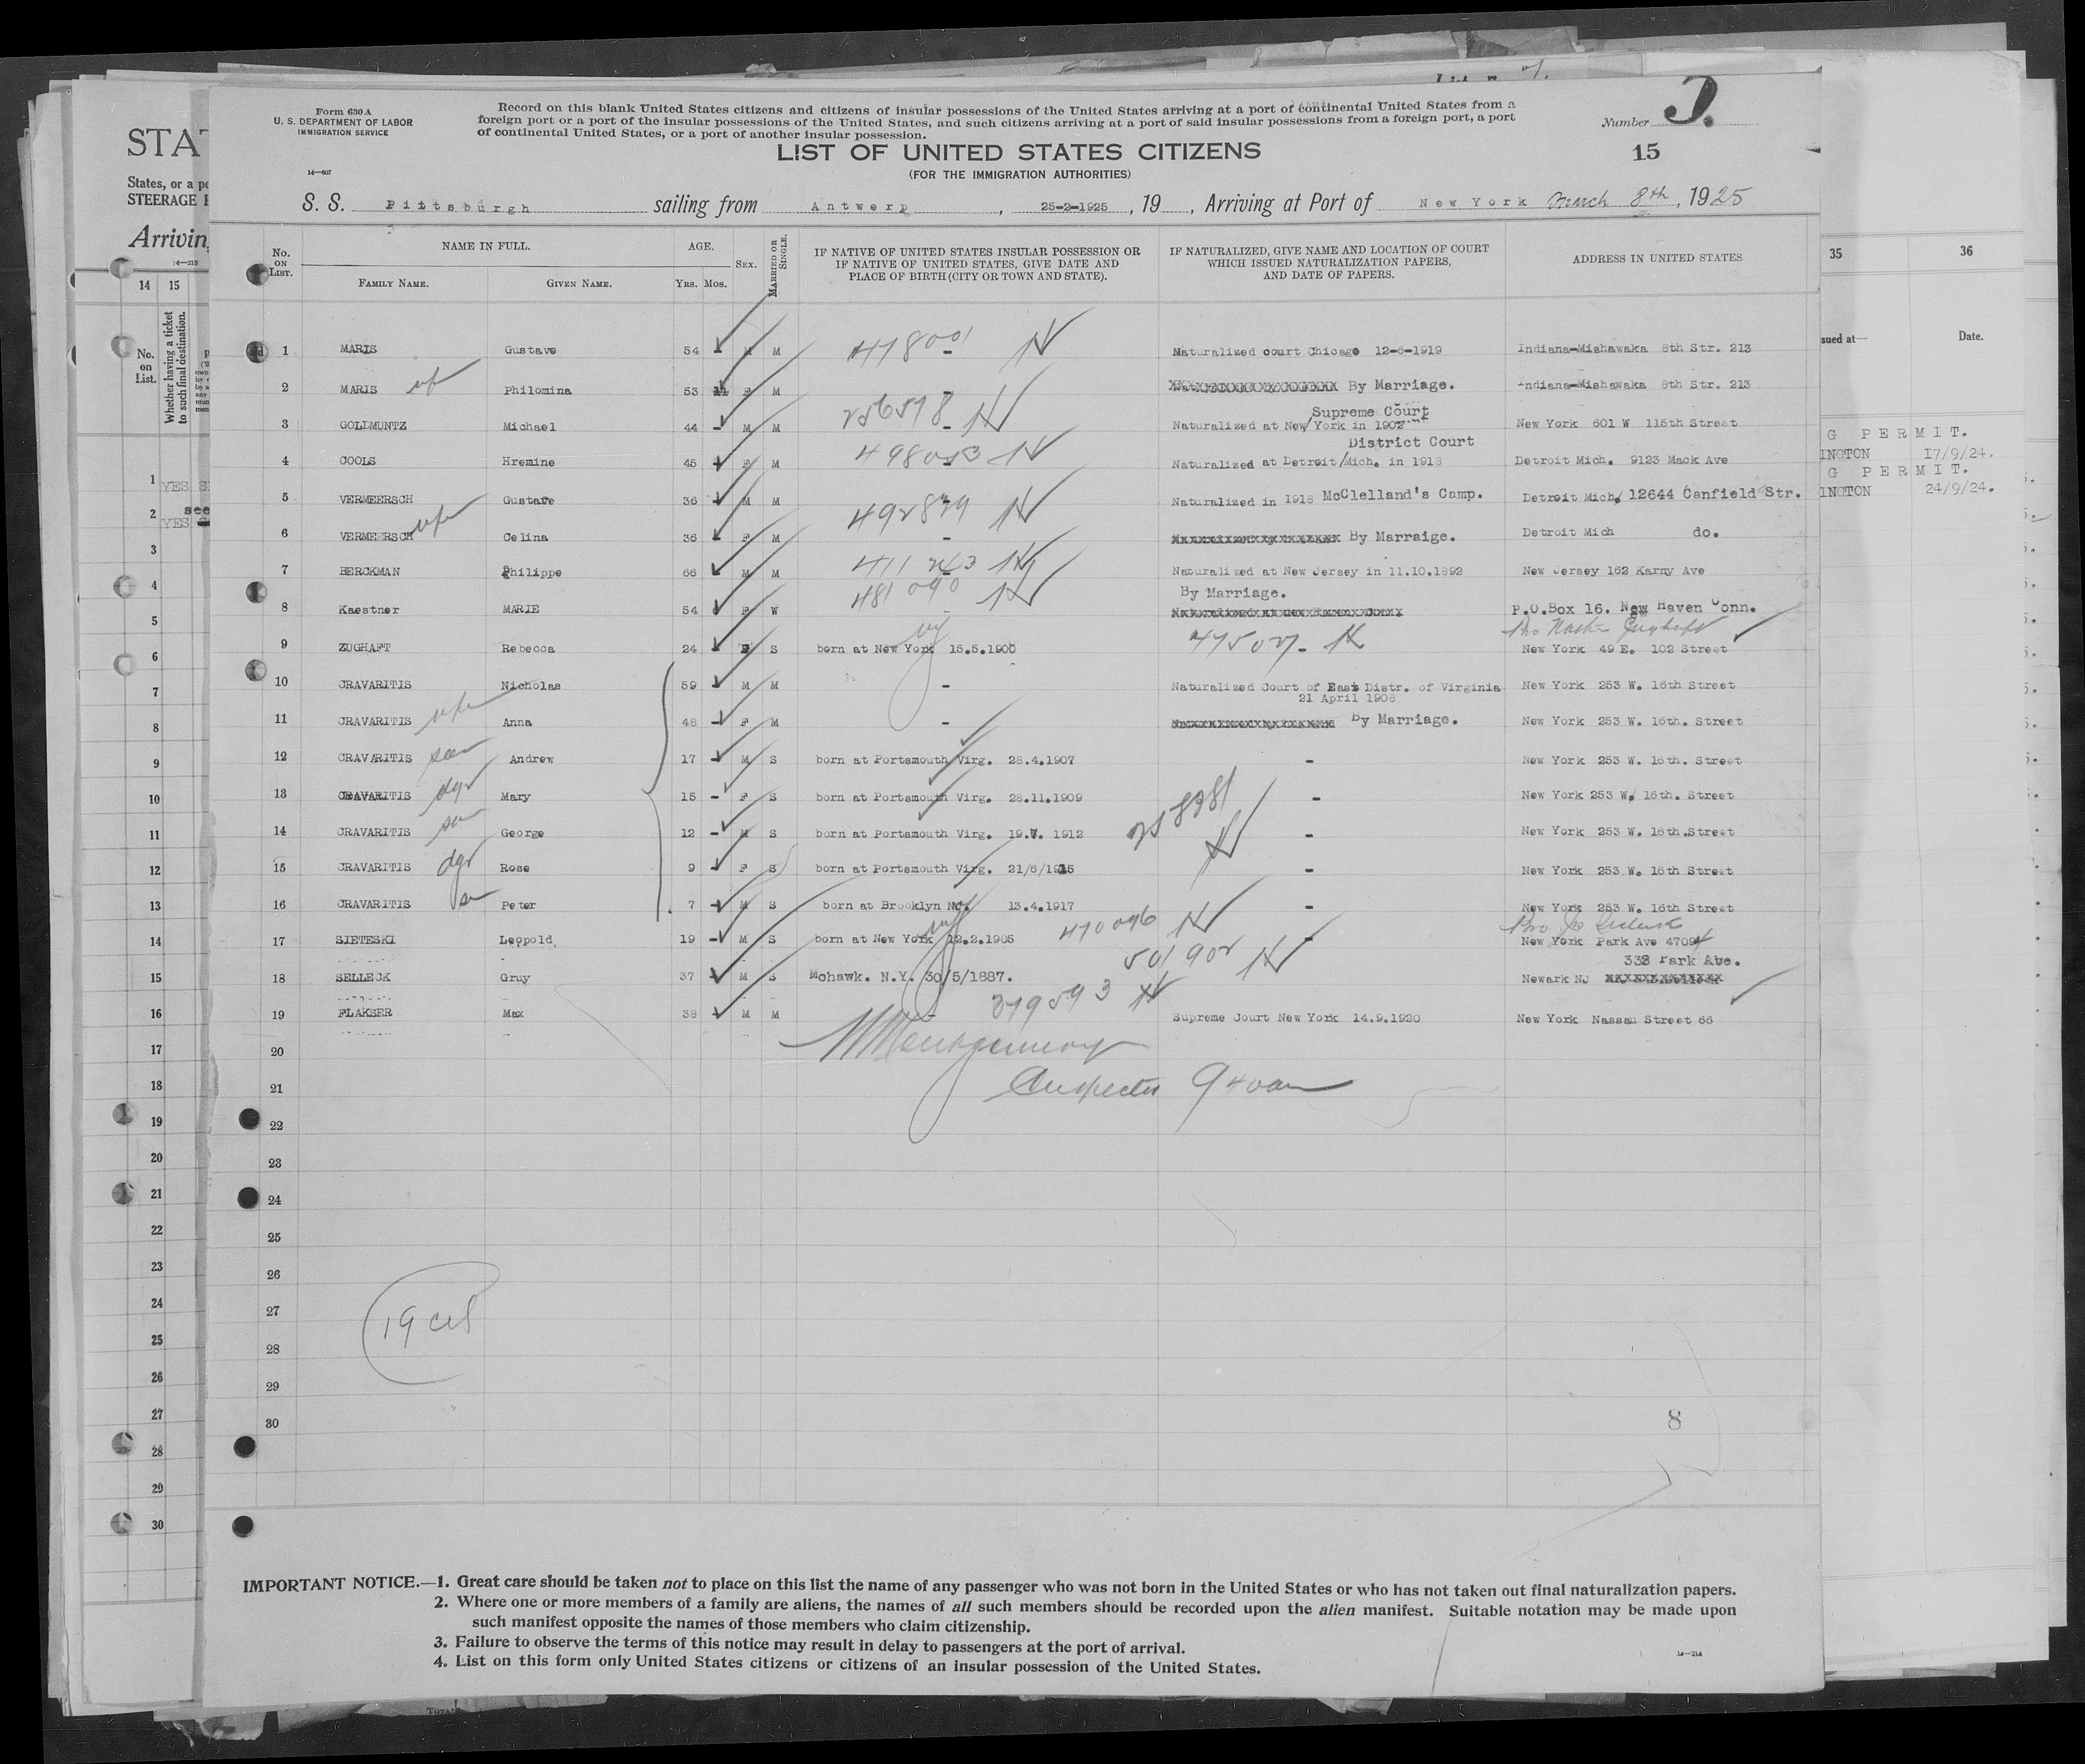 Form 630 A
U. S. DEPARTMENT OF LABOR
IMMIGRATION SERVICE
14—607
Record on this blank United States citizens and citizens of insular possessions of the United States arriving at a port of continental United States from a
foreign port or a port of the insular possessions of the United States, and such citizens arriving at a port of said insular possessions from a foreign port, a port
of continental United States, or a port of another insular possession.
Number
15
LIST OF UNITED STATES CITIZENS
(FOR THE IMMIGRATION AUTHORITIES)
S. S. Pittsburgh sailing from Antwerp, 25-2-1925, 19 , Arriving at Port of New York March 8th, 1925
No. ON LIST. NAME IN FULL. AGE. SEX. MARRIED OR SINGLE. IF NATIVE OF UNITED STATES INSULAR POSSESSION OR IF NATIVE OF UNITED STATES, GIVE DATE AND PLACE OF BIRTH (CITY OR TOWN AND STATE). IF NATURALIZED, GIVE NAME AND LOCATION OF COURT WHICH ISSUED NATURALIZATION PAPERS, AND DATE OF PAPERS. ADDRESS IN UNITED STATES
FAMILY NAME. GIVEN NAME. YRS. MOS.
1 MARIS Gustave 54 - M M 418001 - Naturalized court Chicago 12-6-1919 Indiana-Mishawaka 8th Str. 213
2 MARIS Philomina 53 11 F M - By Marriage. Indiana-Mishawaka 8th Str. 213
3 GOLDMUNTZ Michael 44 - M M 256578 - Naturalized at New York in 1902 Supreme Court New York 601 W 115th Street
4 COOLS Hremine 45 F M Naturalized at Detroit/Mich. in 1918 District Court Detroit Mich. 9123 Mack Ave
5 VERMEERSCH Gustave 36 - M M Naturalized in 1918 McClelland's Camp. Detroit Mich, 12644 Canfield Str.
6 VERMEERSCH wife Celina 36 - F M - By Marraige. Detroit Mich do.
7 BERCKMAN Philippe 66 - M M Naturalized at New Jersey in 11.10.1892 New Jersey 162 Karny Ave
8 Kaestner MARIE 54 F W 481090 - By Marriage. P.O.Box 16. New Haven Conn.
9 ZUGHAFT Rebecca 24 - F S born at New York 15.5.1900 New York 49 E. 102 Street
10 CRAVARITIS Nicholas 59 - M M - Naturalized Court of East Distr. of Virginia 21 April 1908 New York 253 W. 16th Street
11 CRAVARITIS wife Anna 48 - F M - By Marriage. New York 253 W. 16th. Street
12 CRAVARITIS son Andrew 17 - M S born at Portsmouth Virg. 28.4.1907 - New York 253 W. 16th. Street
13 CRAVARITIS dgr Mary 15 - F S born at Portsmouth Virg. 28.11.1909 - New York 253 W. 16th. Street
14 CRAVARITIS son George 12 - M S born at Portsmouth Virg. 19.7. 1912 - New York 253 W. 16th.Street
15 CRAVARITIS dgr Rose 9 - F S born at Portsmouth Virg. 21/6/1915 - New York 253 W. 16th Street
16 CRAVARITIS Peter 7 - M S born at Brooklyn 13.4.1917 - New York 253 W. 16th Street
17 SIETESKI Leopold 19 - M S born at New York 12.2.1905 470096 - New York Park Ave 4709
18 SELLECK Gruy 37 - M S Mohawk. N.Y. 30/5/1887. 501902 Newark NJ 338 Park Ave.
19 FLAKSER Max 38 - M M - 379593 Supreme Court New York 14.9.1920 New York Nassau Street 66
20
Montgomery
21
Inspector 9 40 am
22
23
24
25
26
27
28
29
30
8
IMPORTANT NOTICE.—1. Great care should be taken not to place on this list the name of any passenger who was not born in the United States or who has not taken out final naturalization papers.
2. Where one or more members of a family are aliens, the names of all such members should be recorded upon the alien manifest. Suitable notation may be made upon
such manifest opposite the names of those members who claim citizenship.
3. Failure to observe the terms of this notice may result in delay to passengers at the port of arrival.
4. List on this form only United States citizens or citizens of an insular possession of the United States.
14—214
STAT
States, or a po
STEERAGE
Arrivin
14—213
14 15
No. on List.
Whether having a ticket to such final destination.
1 YES
2 YES see
3
4
5
6
7
8
9
10
11
12
13
14
15
16
17
18
19
20
21
22
23
24
25
26
27
28
29
30
35 36
sued at— Date.
G PERMIT.
INGTON 17/9/24.
G PERMIT.
INGTON 24/9/24.